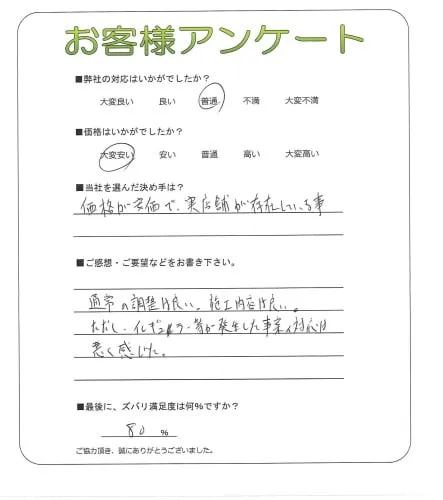 お客様アンケート
■弊社の対応はいかがでしたか?
大変良い 良い 普通 不満 大変不満
■価格はいかがでしたか?
大変安い 安い 普通 高い 大変高い
■当社を選んだ決め手は?
価格が安価で、実店舗が存在している事
■ご感想・ご要望などをお書き下さい。
通常の調整は良い。施工内容は良い。
ただし、イレギュラー等が発生した事案の対応は
悪く感じた。
■最後に、ズバリ満足度は何%ですか?
80 %
ご協力頂き、誠にありがとうございました。